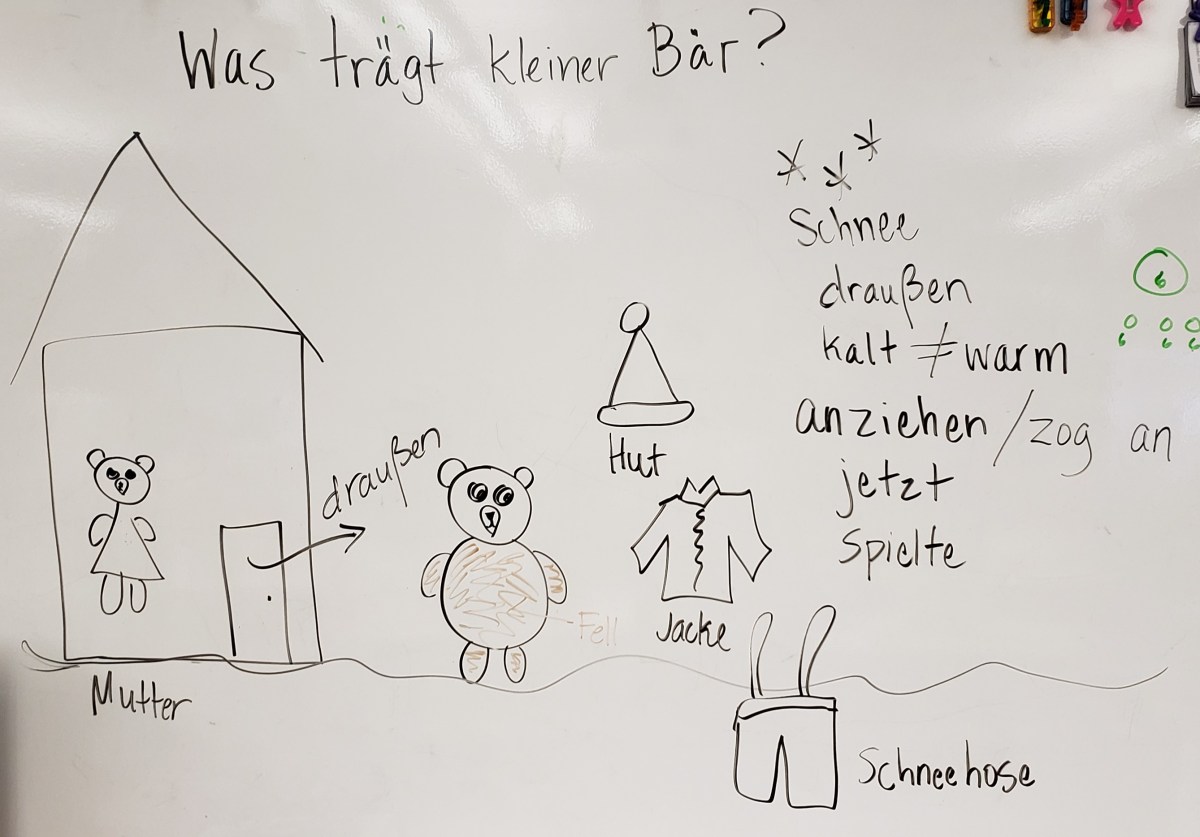 Was trägt kleiner Bär?
Schnee
draußen
kalt ≠ warm
anziehen / zog an
jetzt
spielte
draußen
Hut
Jacke
Fell
Mutter
Schneehose
6
6 6 6